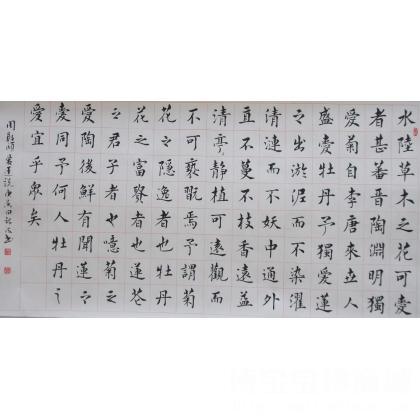 水陸草木之花可愛
者甚蕃晉陶淵明獨
愛菊自李唐來世人
盛愛牡丹予獨愛蓮
之出淤泥而不染濯
清漣而不妖中通外
直不蔓不枝香遠益
清亭靜植可遠觀而
不可褻翫焉予謂菊
花之隱逸者也牡丹
花之富貴者也蓮花
之君子者也噫菊之
愛陶後鮮有聞蓮之
愛同予何人牡丹之
愛宜乎眾矣
周敦頤愛蓮說